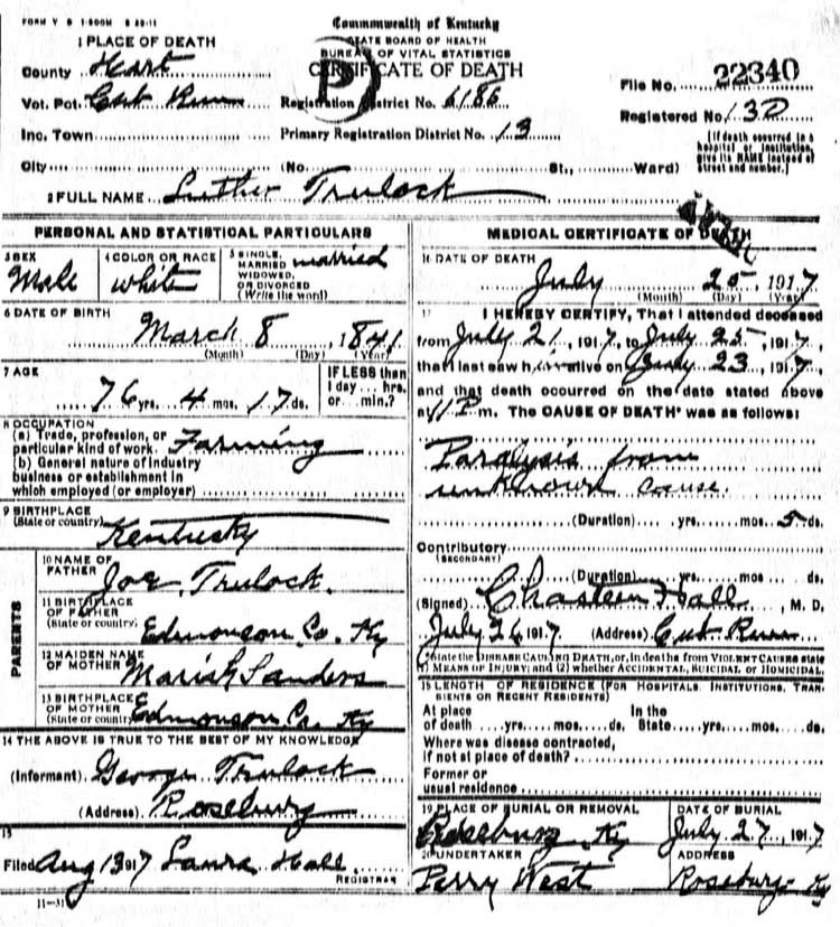 FORM V S 1-500M 8 28-11
Commonwealth of Kentucky
STATE BOARD OF HEALTH
BUREAU OF VITAL STATISTICS
CERTIFICATE OF DEATH
P
1 PLACE OF DEATH
County Hart
Vot. Pct. Cub Run
Inc. Town
City
Registration District No. 6186
Primary Registration District No. 13
(No. St., Ward)
File No. 22340
Registered No. 130
(If death occurred in a hospital or institution, give its NAME instead of street and number.)
2 FULL NAME Luther Trulock
PERSONAL AND STATISTICAL PARTICULARS
3 SEX
Male
4 COLOR OR RACE
white
5 SINGLE, MARRIED WIDOWED, OR DIVORCED (Write the word)
married
6 DATE OF BIRTH
March 8, 1841
(Month) (Day) (Year)
7 AGE
76 yrs. 4 mos. 17 ds.
IF LESS than 1 day ... hrs. or ... min.?
8 OCCUPATION
(a) Trade, profession, or particular kind of work Farming
(b) General nature of industry
business or establishment in
which employed (or employer)
9 BIRTHPLACE
(State or country)
Kentucky
PARENTS
10 NAME OF FATHER
Joe Trulock.
11 BIRTHPLACE OF FATHER (State or country)
Edmonson Co. Ky
12 MAIDEN NAME OF MOTHER
Mariah Sanders
13 BIRTHPLACE OF MOTHER (State or country)
Edmonson, Co. Ky
14 THE ABOVE IS TRUE TO THE BEST OF MY KNOWLEDGE
(Informant) George Trulock
(Address) Roseburg
15
Filed Aug 13 1917 Laura Hall
REGISTRAR
11-31
MEDICAL CERTIFICATE OF DEATH
16 DATE OF DEATH
July 25, 1917
(Month) (Day) (Year)
17 I HEREBY CERTIFY, That I attended deceased
from July 21, 1917, to July 25, 1917,
that I last saw him alive on July 23, 1917,
and that death occurred on the date stated above
at 11 P m. The CAUSE OF DEATH* was as follows:
Paralysis from
unknown cause.
(Duration) yrs. mos. 5 ds.
Contributory
(SECONDARY)
(Duration) yrs. mos. ds.
(Signed) Chasteen Hall, M. D.
July 26 1917 (Address) Cub Run
*State the DISEASE CAUSING DEATH, or, in deaths from VIOLENT CAUSES state
(1) MEANS OF INJURY; and (2) whether ACCIDENTAL, SUICIDAL or HOMICIDAL.
18 LENGTH OF RESIDENCE (FOR HOSPITALS, INSTITUTIONS, TRANSIENTS OR RECENT RESIDENTS)
At place of death yrs. mos. ds. In the State yrs. mos. ds.
Where was disease contracted,
if not at place of death?
Former or
usual residence
19 PLACE OF BURIAL OR REMOVAL
Roseburg Ky
DATE OF BURIAL
July 27, 1917
20 UNDERTAKER
Perry West
ADDRESS
Roseburg Ky